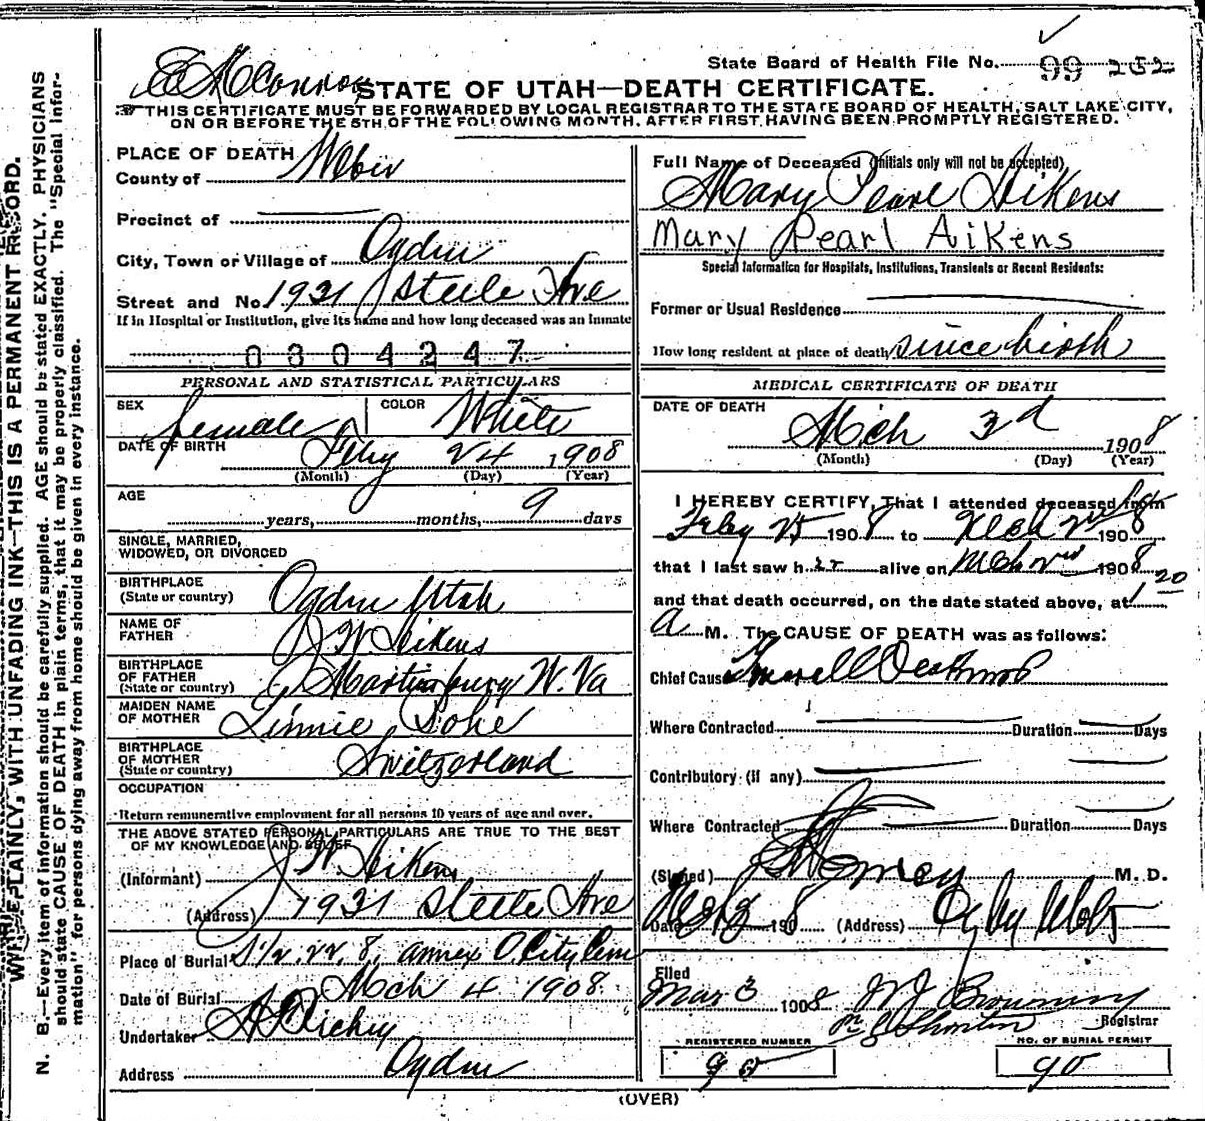 State Board of Health File No. 99 252
STATE OF UTAH—DEATH CERTIFICATE.
THIS CERTIFICATE MUST BE FORWARDED BY LOCAL REGISTRAR TO THE STATE BOARD OF HEALTH, SALT LAKE CITY,
ON OR BEFORE THE 5TH OF THE FOLLOWING MONTH, AFTER FIRST HAVING BEEN PROMPTLY REGISTERED.
WRITE PLAINLY, WITH UNFADING INK—THIS IS A PERMANENT RECORD.
N. B.—Every item of information should be carefully supplied. AGE should be stated EXACTLY. PHYSICIANS
should state CAUSE OF DEATH in plain terms, that it may be properly classified. The "Special Infor-
mation" for persons dying away from home should be given in every instance.
PLACE OF DEATH
County of Weber
Precinct of
City, Town or Village of Ogden
Street and No. 1931 Steele Ave
If in Hospital or Institution, give its name and how long deceased was an inmate
0304247
PERSONAL AND STATISTICAL PARTICULARS
SEX female COLOR White
DATE OF BIRTH Feby 24 1908
(Month) (Day) (Year)
AGE years, months, 9 days
SINGLE, MARRIED,
WIDOWED, OR DIVORCED
BIRTHPLACE
(State or country) Ogden Utah
NAME OF
FATHER J W Aikens
BIRTHPLACE
OF FATHER
(State or country) Martinsburg W. Va
MAIDEN NAME
OF MOTHER Linnie
BIRTHPLACE
OF MOTHER
(State or country) Switzerland
OCCUPATION
Return remunerative employment for all persons 10 years of age and over.
THE ABOVE STATED PERSONAL PARTICULARS ARE TRUE TO THE BEST
OF MY KNOWLEDGE AND BELIEF
(Informant) J W Aikens
(Address) 1931 Steele Ave
Place of Burial annex O City Cem
Date of Burial Mch 4 1908
Undertaker
Address Ogden
Full Name of Deceased (Initials only will not be accepted)
Mary Pearl Aikens
Mary Pearl Aikens
Special Information for Hospitals, Institutions, Transients or Recent Residents:
Former or Usual Residence
How long resident at place of death since birth
MEDICAL CERTIFICATE OF DEATH
DATE OF DEATH
Mch 3d 1908
(Month) (Day) (Year)
I HEREBY CERTIFY, That I attended deceased from
Feby 25 1908 to Mch 2nd 1908
that I last saw her alive on Mch 2nd 1908
and that death occurred, on the date stated above, at 1 20
A M. The CAUSE OF DEATH was as follows:
Chief Cause
Where Contracted Duration Days
Contributory (if any)
Where Contracted Duration Days
(Signed) M. D.
Date 190 8 (Address)
Filed
Mar 3 1908
Registrar
REGISTERED NUMBER
90
NO. OF BURIAL PERMIT
90
(OVER)